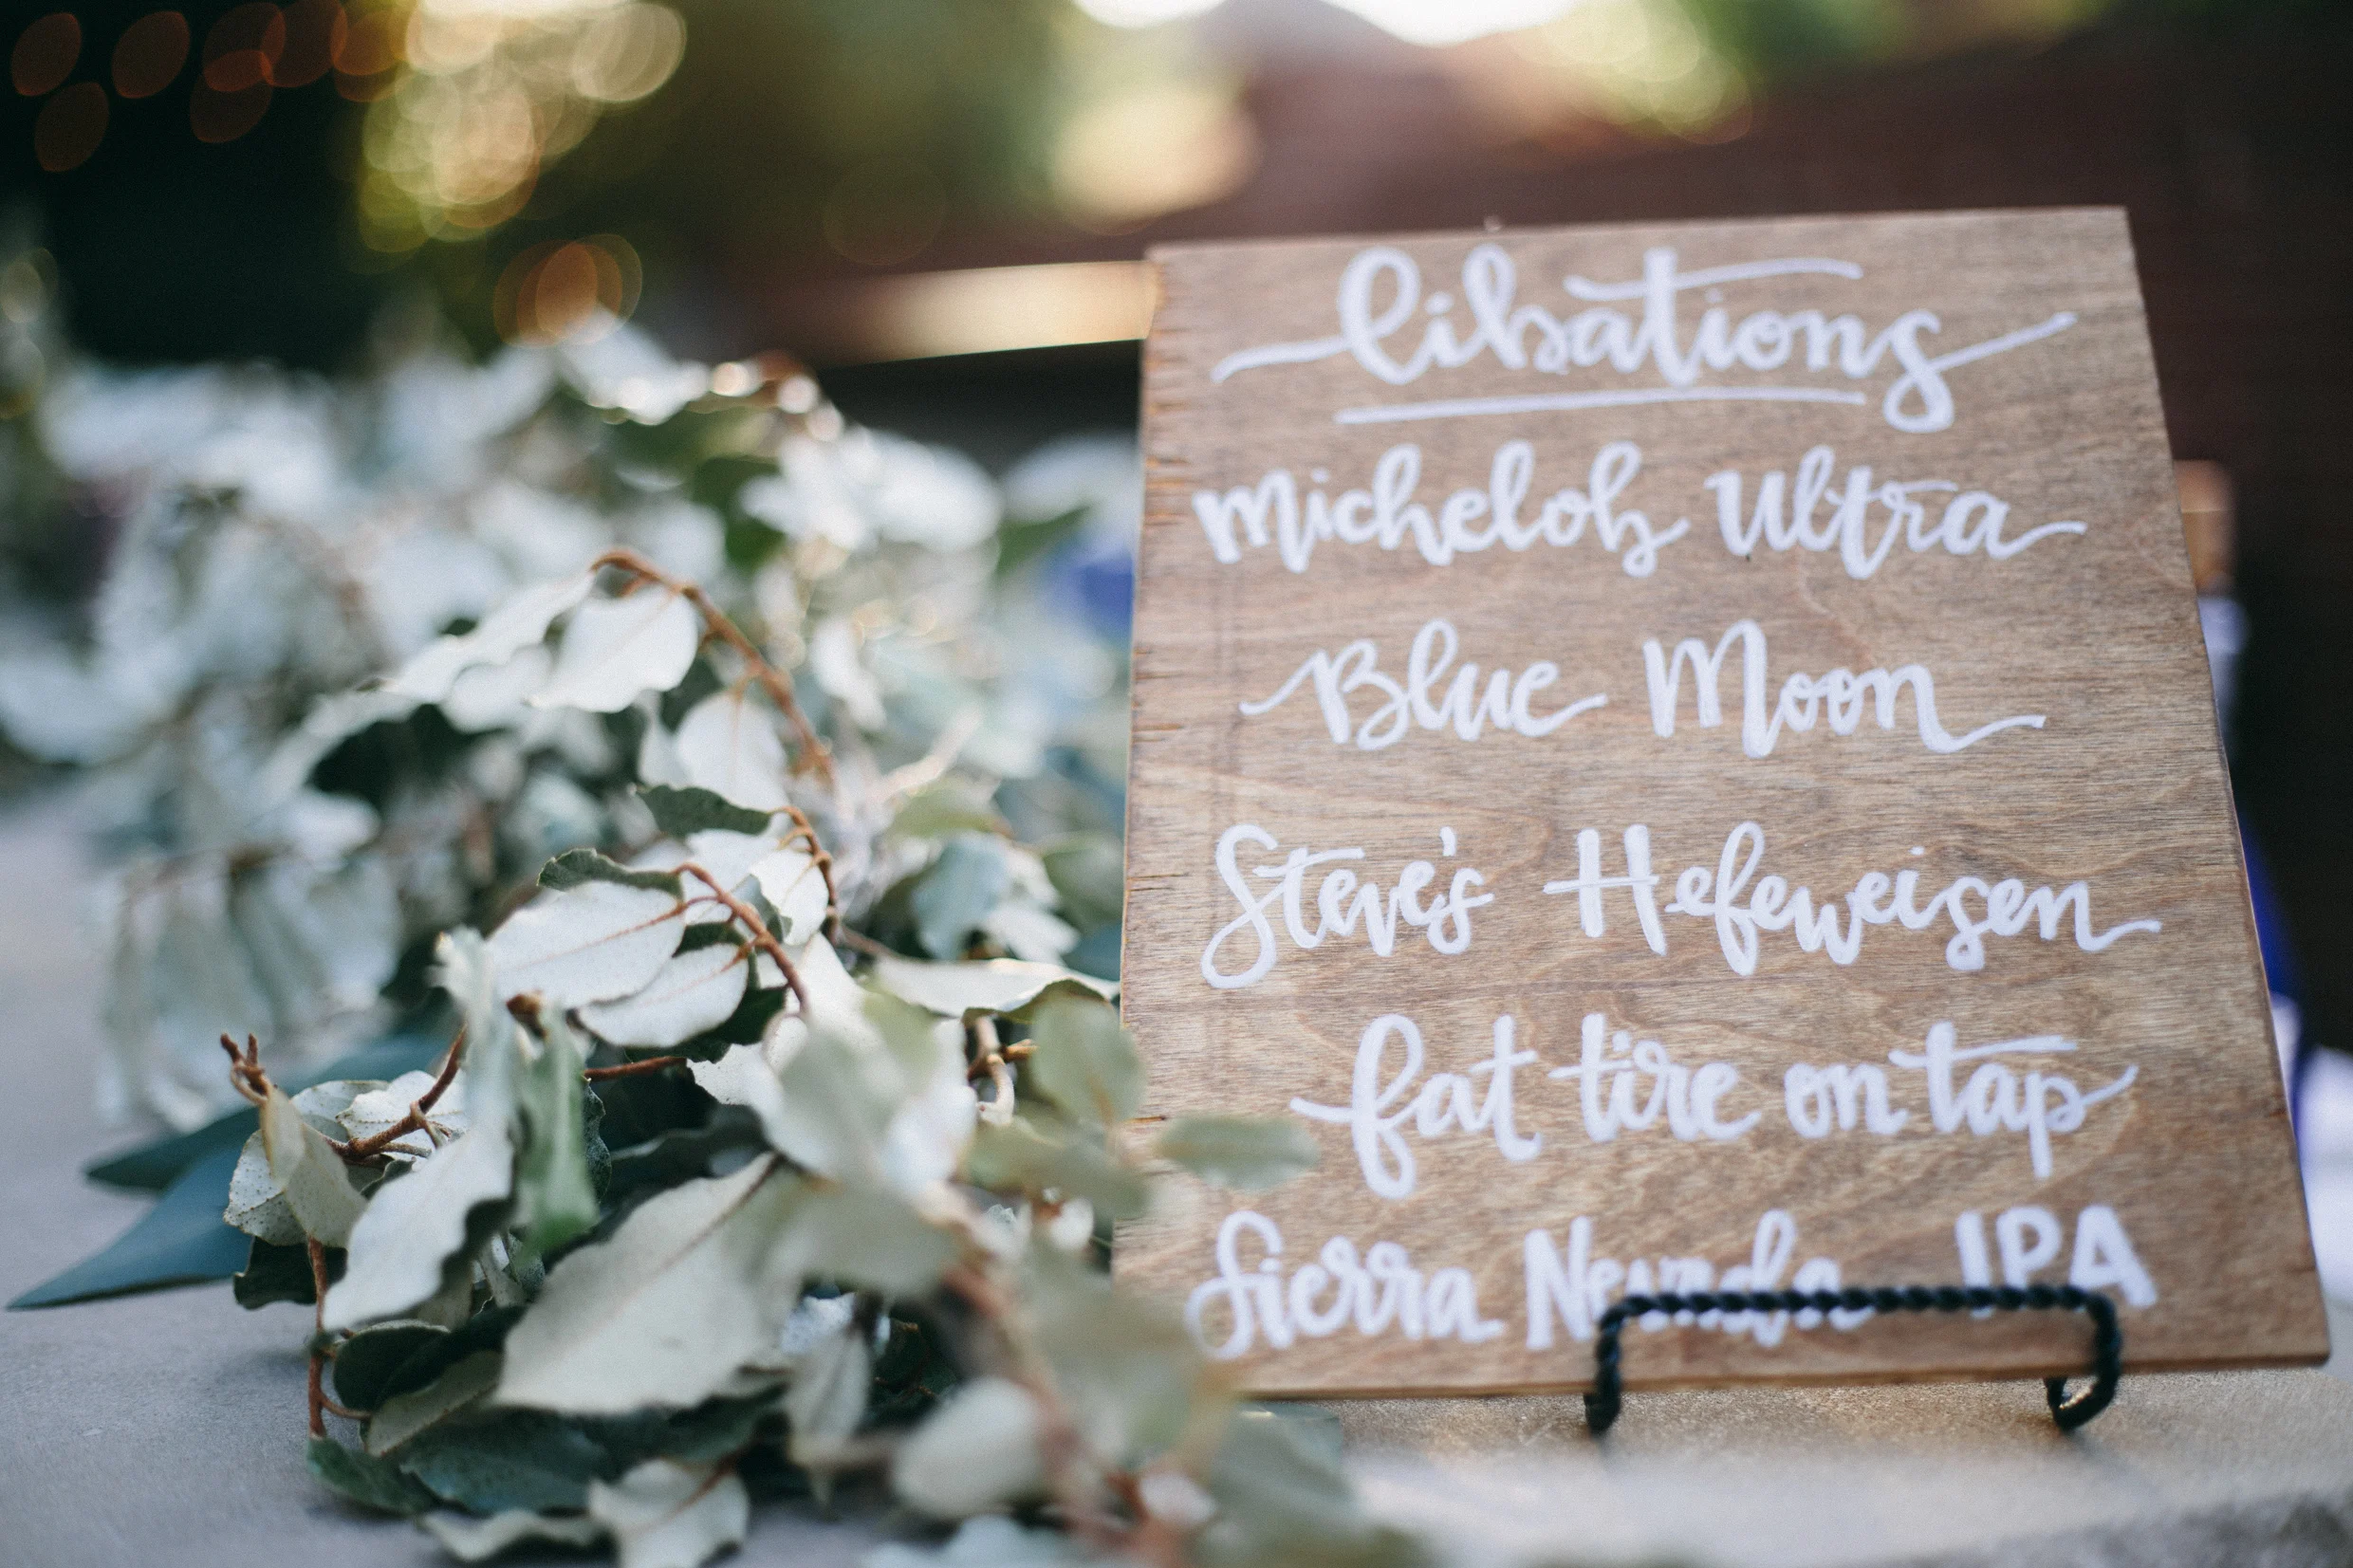 libations
Michelob Ultra
Blue Moon
Steve's Hefeweisen
fat tire on tap
Sierra Nevada IPA